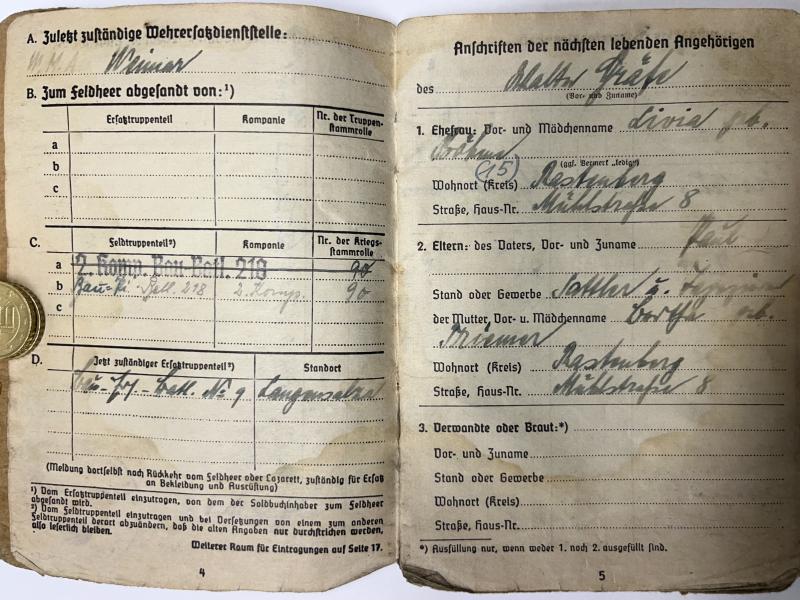 A. Zuletzt zuständige Wehrersatzdienststelle:
W.M.A. Weimar
B. Zum Feldheer abgesandt von:¹)
Ersatztruppenteil
Kompanie
Nr. der Truppen-
stammrolle
a
b
c
C.
Feldtruppenteil²)
Kompanie
Nr. der Kriegs-
stammrolle
a 2. Komp. Bau-Batl. 218 90
b Bau-Pi-Batl. 218 2. Komp. 90
c
D.
Jetzt zuständiger Ersatztruppenteil²)
Standort
Batl. No 9 Langensalza
(Meldung dortselbst nach Rückkehr vom Feldheer oder Lazarett, zuständig für Ersatz
an Bekleidung und Ausrüstung)
¹) Vom Ersatztruppenteil einzutragen, von dem der Soldbuchinhaber zum Feldheer
abgesandt wird.
²) Vom Feldtruppenteil einzutragen und bei Versetzungen von einem zum anderen
Feldtruppenteil derart abzuändern, daß die alten Angaben nur durchstrichen werden,
also leserlich bleiben.
Weiterer Raum für Eintragungen auf Seite 17.
4
Anschriften der nächsten lebenden Angehörigen
des Walter Gräfe
(Vor- und Zuname)
1. Ehefrau: Vor- und Mädchenname Livia geb.
Böhme
(15)
(ggf. Vermerk „ledig“)
Wohnort (Kreis) Rastenberg
Straße, Haus-Nr. Mühlstraße 8
2. Eltern: des Vaters, Vor- und Zuname Paul
Stand oder Gewerbe Sattler u. Tapezierer
der Mutter, Vor- u. Mädchenname Bertha geb.
Wohnort (Kreis) Rastenberg
Straße, Haus-Nr. Mühlstraße 8
3. Verwandte oder Braut:*)
Vor- und Zuname
Stand oder Gewerbe
Wohnort (Kreis)
Straße, Haus-Nr.
*) Ausfüllung nur, wenn weder 1. noch 2. ausgefüllt sind.
5